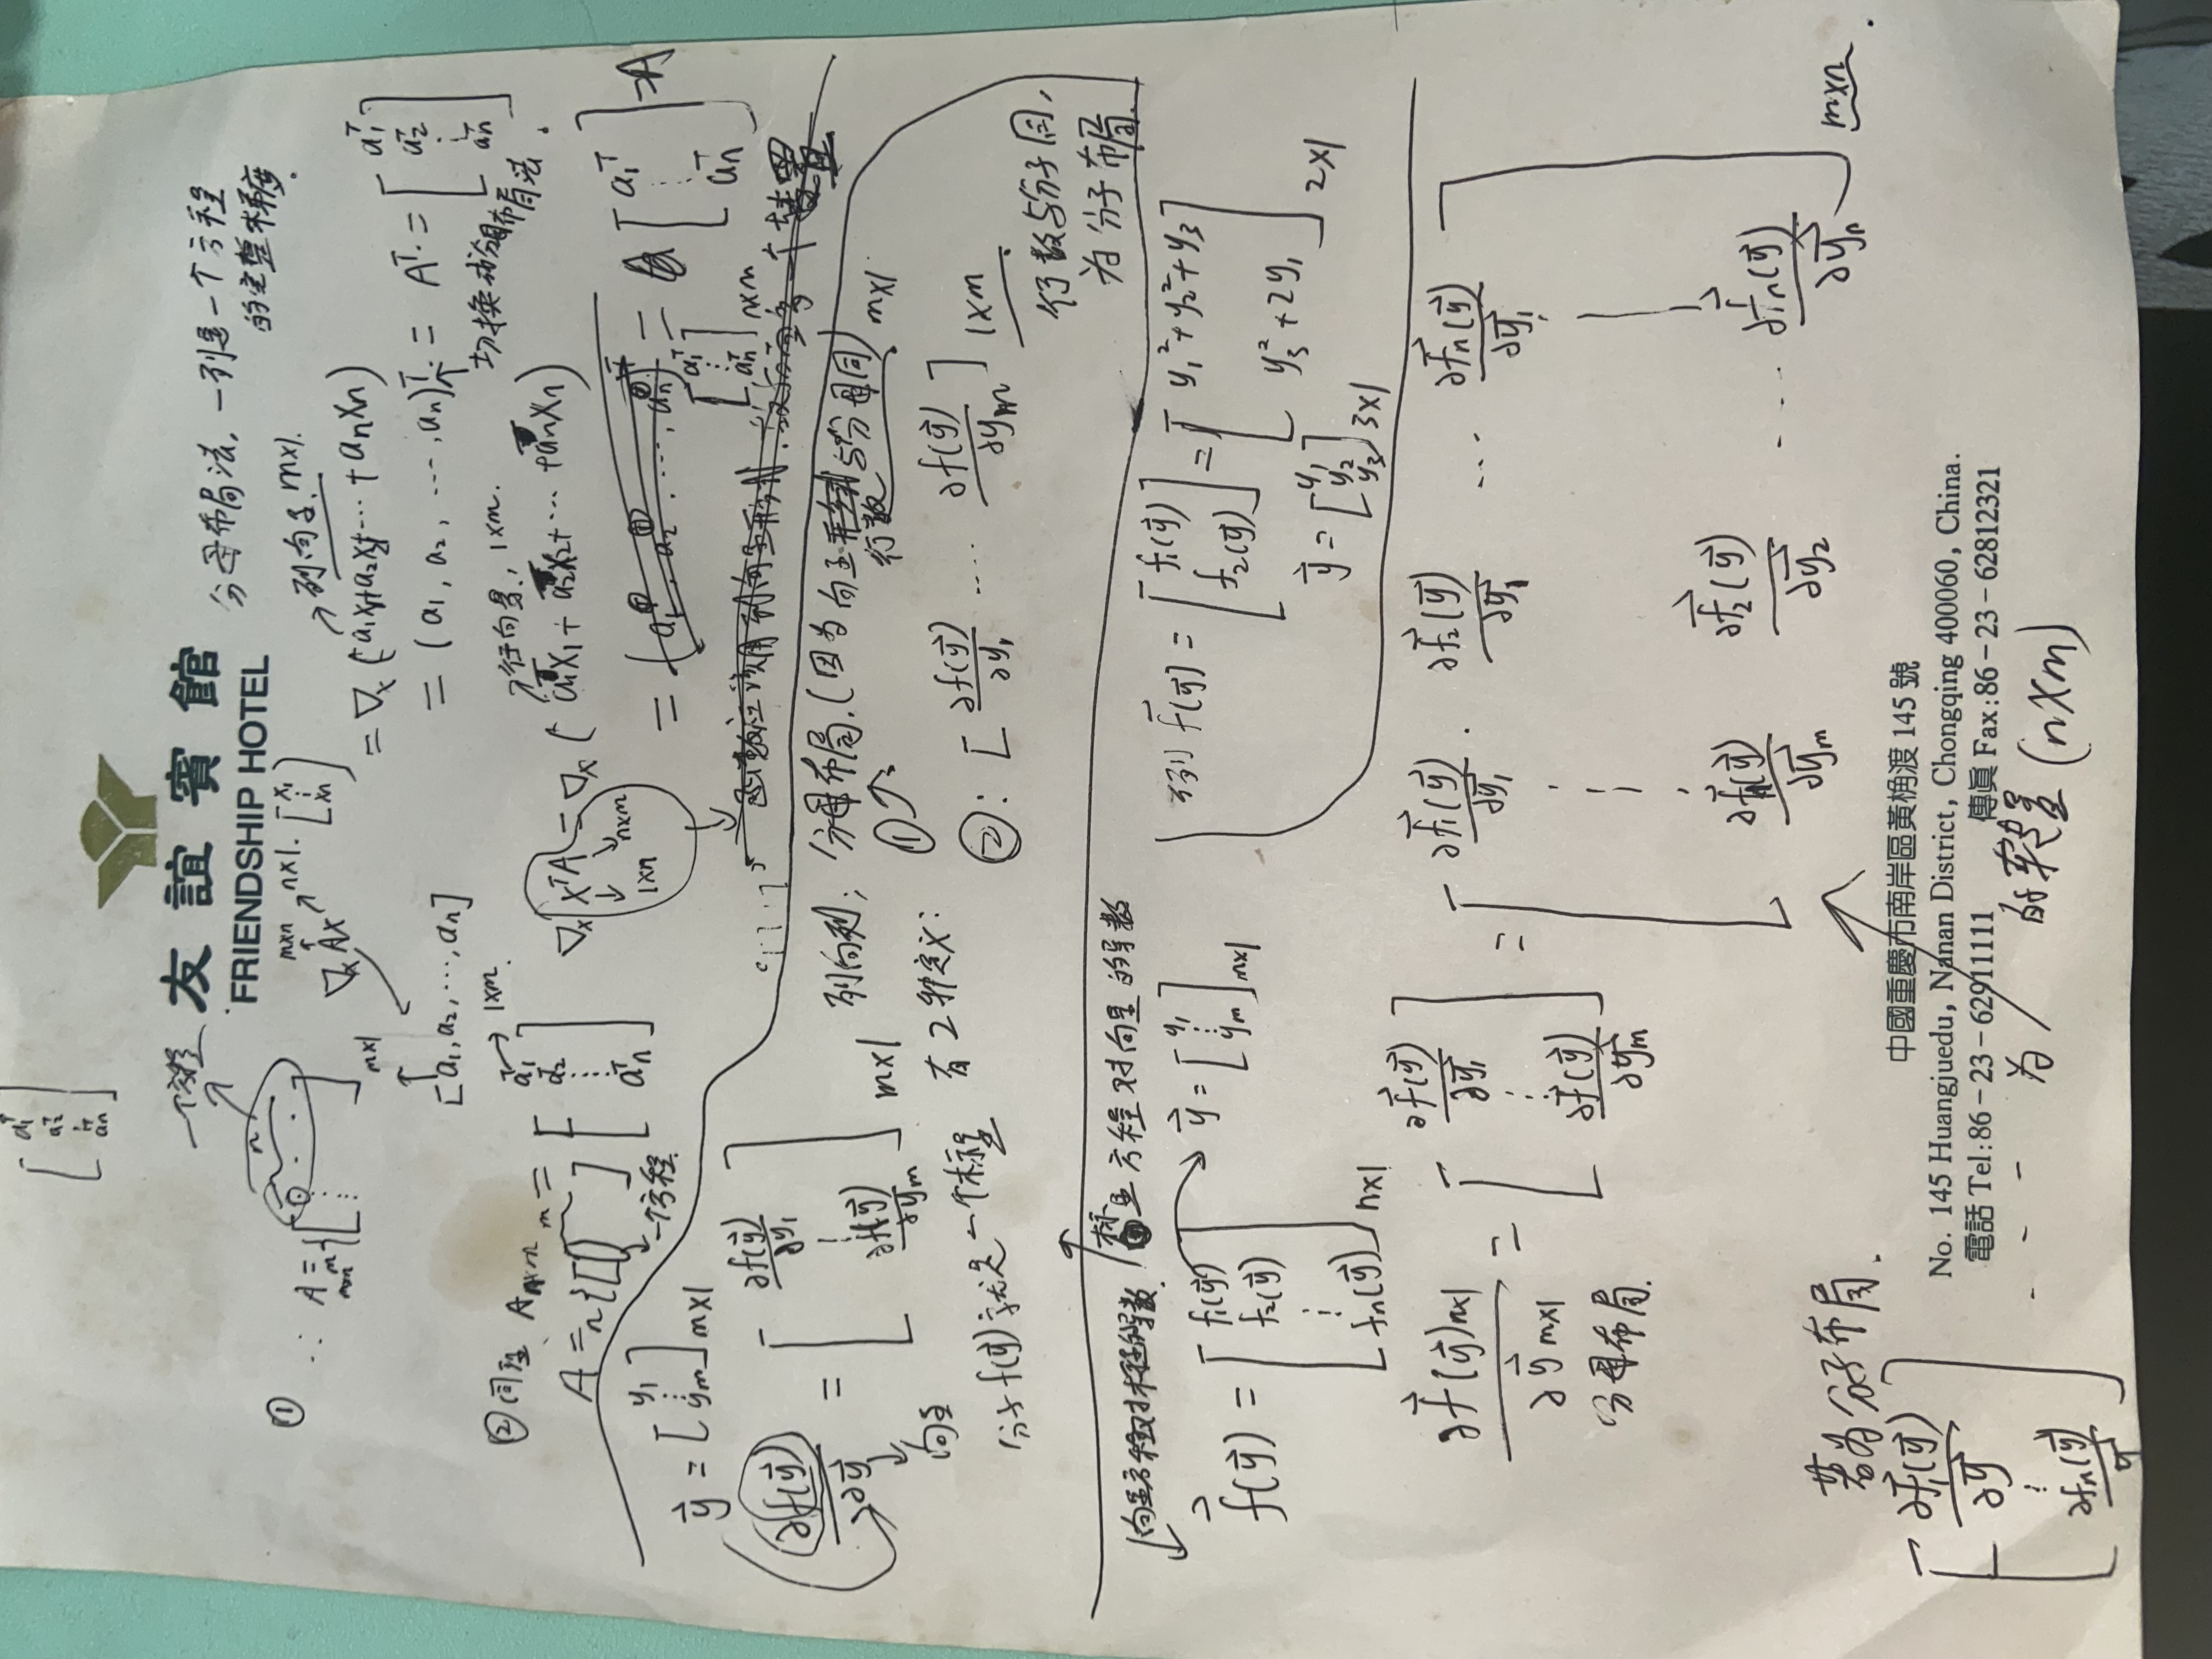 [a₁ᵀ
a₂ᵀ
⋮
aₙᵀ]
友誼賓館
FRIENDSHIP HOTEL
一个方程
分母布局法,一列是一个方程
的完整梯度.
①
∴ A m×n = m{[ ]
n
∇ₓAx
m×n
n×1. [x₁ ⋮ xₙ]
m×1
[a₁, a₂, ⋯, aₙ]
列向量. m×1.
= ∇ₓ(a₁x₁+a₂x₂+⋯+aₙxₙ)
= (a₁, a₂, ⋯, aₙ)ᵀ = Aᵀ = [a₁ᵀ a₂ᵀ ⋮ aₙᵀ]
切换成分母布局法.
②同理 A n×m
A = n{[ ] m = [a₁ᵀ a₂ᵀ ⋮ aₙᵀ]
1×m
一个方程.
∇ₓ xᵀA = ∇ₓ(a₁ᵀx₁+a₂ᵀx₂+⋯+aₙᵀxₙ)
行向量, 1×m.
1×n
n×m
= (a₁ᵀ, a₂ᵀ, ⋯, aₙᵀ)ᵀ = [a₁ᵀ ⋮ aₙᵀ] = A
[a₁ᵀ ⋮ aₙᵀ] n×m
函数应该用列向量形式.
一个转置
y⃗ = [y₁ ⋮ yₘ] m×1
∂f(y⃗)/∂y⃗ = [∂f(y⃗)/∂y₁ ⋮ ∂f(y⃗)/∂yₘ] m×1
向量
分子f(y⃗)就是一个标量
有2种定义:
分母布局.(因为向量行数与分母同) m×1
①
②: [∂f(y⃗)/∂y₁ ⋯ ∂f(y⃗)/∂yₘ] 1×m
行数与分子同,
为分子布局.
标量方程对向量的导数
f⃗(y⃗) = [f₁(y⃗) f₂(y⃗) ⋮ fₙ(y⃗)] n×1
y⃗ = [y₁ ⋮ yₘ] m×1
例 f⃗(y⃗) = [f₁(y⃗) f₂(y⃗)] = [y₁²+y₂²+y₃ y₃²+2y₁] 2×1
y⃗ = [y₁ y₂ y₃] 3×1
∂f⃗(y⃗) n×1/∂y⃗ m×1 = [∂f⃗(y⃗)/∂y⃗₁ ⋮ ∂f⃗(y⃗)/∂y⃗ₘ] = [∂f⃗₁(y⃗)/∂y⃗₁ ∂f⃗₂(y⃗)/∂y⃗₁ ⋯ ∂f⃗ₙ(y⃗)/∂y⃗₁
分母布局.
∂f⃗₁(y⃗)/∂y⃗ₘ ∂f⃗₂(y⃗)/∂y⃗₂ ⋯ ∂f⃗ₙ(y⃗)/∂y⃗ₙ] m×n.
若为分子布局.
[∂f⃗₁(y⃗)/∂y⃗ ⋮ ∂fₙ(y⃗)/y⃗]
中國重慶市南岸區黃桷渡 145 號
No. 145 Huangjuedu, Nanan District, Chongqing 400060, China.
電話 Tel:86-23-62911111 傳真 Fax:86-23-62812321
--- 为 的转置 (n×m)